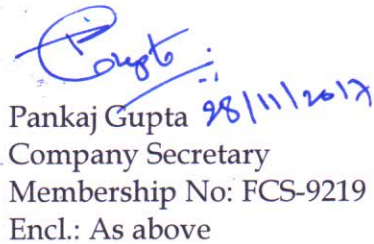 Gupta
Pankaj Gupta 28/11/2017
Company Secretary
Membership No: FCS-9219
Encl.: As above